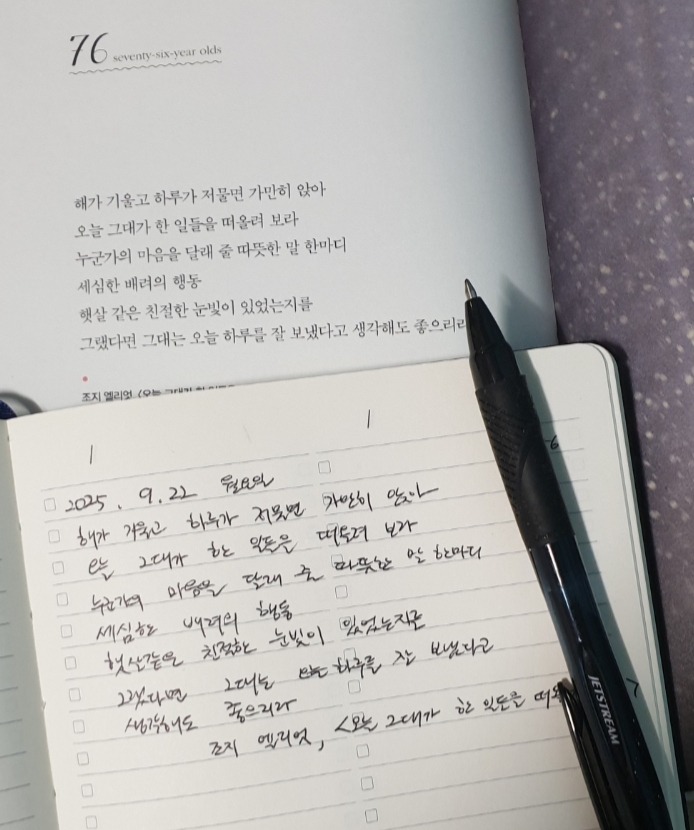 76 seventy-six-year olds
해가 기울고 하루가 저물면 가만히 앉아
오늘 그대가 한 일들을 떠올려 보라
누군가의 마음을 달래 줄 따뜻한 말 한마디
세심한 배려의 행동
햇살 같은 친절한 눈빛이 있었는지를
그랬다면 그대는 오늘 하루를 잘 보냈다고 생각해도 좋으리라
조지 엘리엇
2025. 9. 22 월요일
해가 기울고 하루가 저물면 가만히 앉아
오늘 그대가 한 일들을 떠올려 보라
누군가의 마음을 달래 줄 따뜻한 말 한마디
세심한 배려의 행동
햇살같은 친절한 눈빛이 있었는지를
그랬다면 그대는 오늘 하루를 잘 보냈다고
생각해도 좋으리라
조지 엘리엇, <오늘 그대가 한 일들을
JETSTREAM